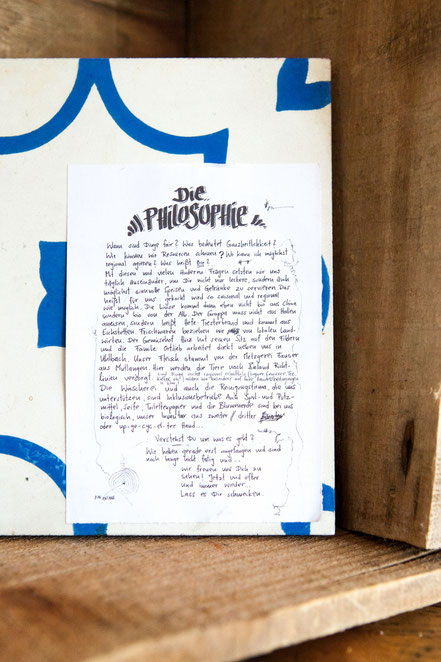 Die
PHILOSOPHIE
Wann sind Dinge fair? Was bedeutet Ganzheitlichkeit?
Wie können wir Resourcen schonen? Wie kann ich möglichst
regional agieren? Was heißt Bio?
Mit diesen und vielen anderen Fragen setzten wir uns
täglich auseinander, um Dir nicht nur leckere, sondern auch
möglichst sinnvolle Speisen und Getränke zu servieren. Das
heißt für uns gekocht wird so saisonal und regional
wie möglich. Die Linse kommt dann eben nicht bio aus China
sondern bio von der Alb. Der Grappa muss nicht aus Italien
anreisen, sondern heißt Hefe-Tresterbrand und kommt aus
Eichstetten. Frischwaren beziehen wir von lokalen Land-
wirten. Der Gemüsehof Binz hat seinen Sitz auf den Feldern
und die Familie Gütink arbeitet direkt neben uns in
Vollbach. Unser Fleisch stammt von der Metzgerei Fauser
aus Mutlangen. Hier werden die Tiere nach Bioland Richt-
linien versorgt.
Die Wäscherei und auch die Reinigungsfirma, die uns
unterstützen, sind Inklusionsbetriebe. Auch Spül- und Putz-
mittel, Seife, Toilettenpapier und die Blumenerde sind bei uns
biologisch, unser Inventar aus zweiter / dritter
oder up-ge-cyc-el-ter Hand...
Verstehst Du um was es geht?
Wir haben gerade erst angefangen und sind
noch lange nicht fertig und...
wir freuen uns Dich zu
sehen! Jetzt und öfter
und immer wieder...
Lass es Dir schmecken.